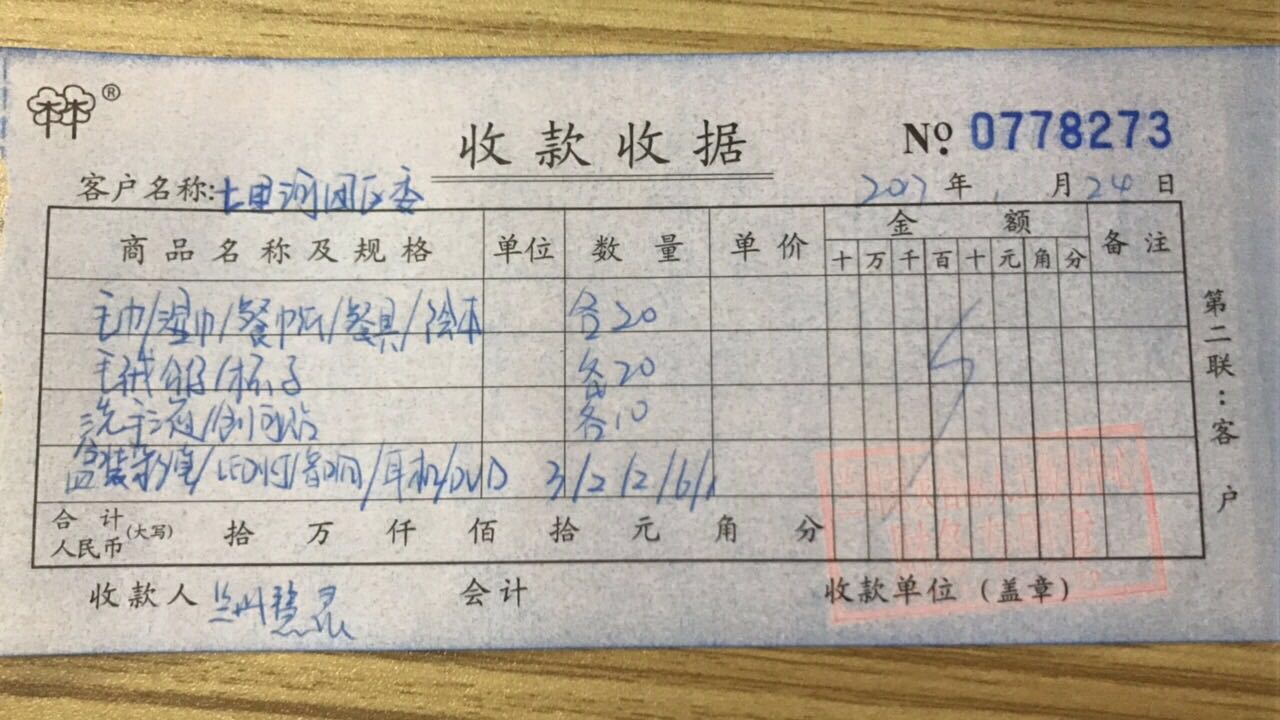 林 ®
收款收据
No. 0778273
客户名称: 七里河团区委 2017 年 1 月 24 日
商品名称及规格 单位 数量 单价 金额 备注
十 万 千 百 十 元 角 分
毛巾/湿巾/餐巾纸/餐具/绘本 各20
毛绒 /杯子 各20
洗手液/创可贴 各10
盆装 /LED灯/音响/耳机/DVD 3/2/2/6/1
合计人民币(大写) 拾 万 仟 佰 拾 元 角 分
收款人 兰州慧灵 会计 收款单位(盖章)
第二联:客户